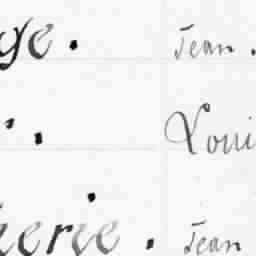 ge. Jean.
. Loui
erie. Jean